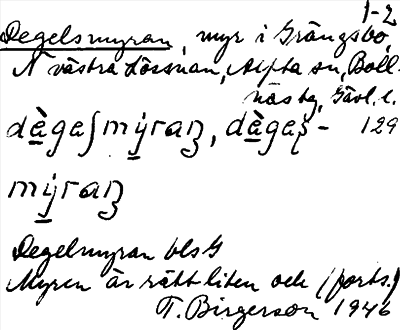 1-2
Degelsmyran, myr i Grängsbo,
N västra Lössnan, Alfta sn, Boll-
näs tg, Gävl. l.
dègaʃmy̌raꞃ, dègaʂ- 129
my̌raꞃ
Degelmyran bls G
Myren är rätt liten och (forts.)
T. Birgerson 1946